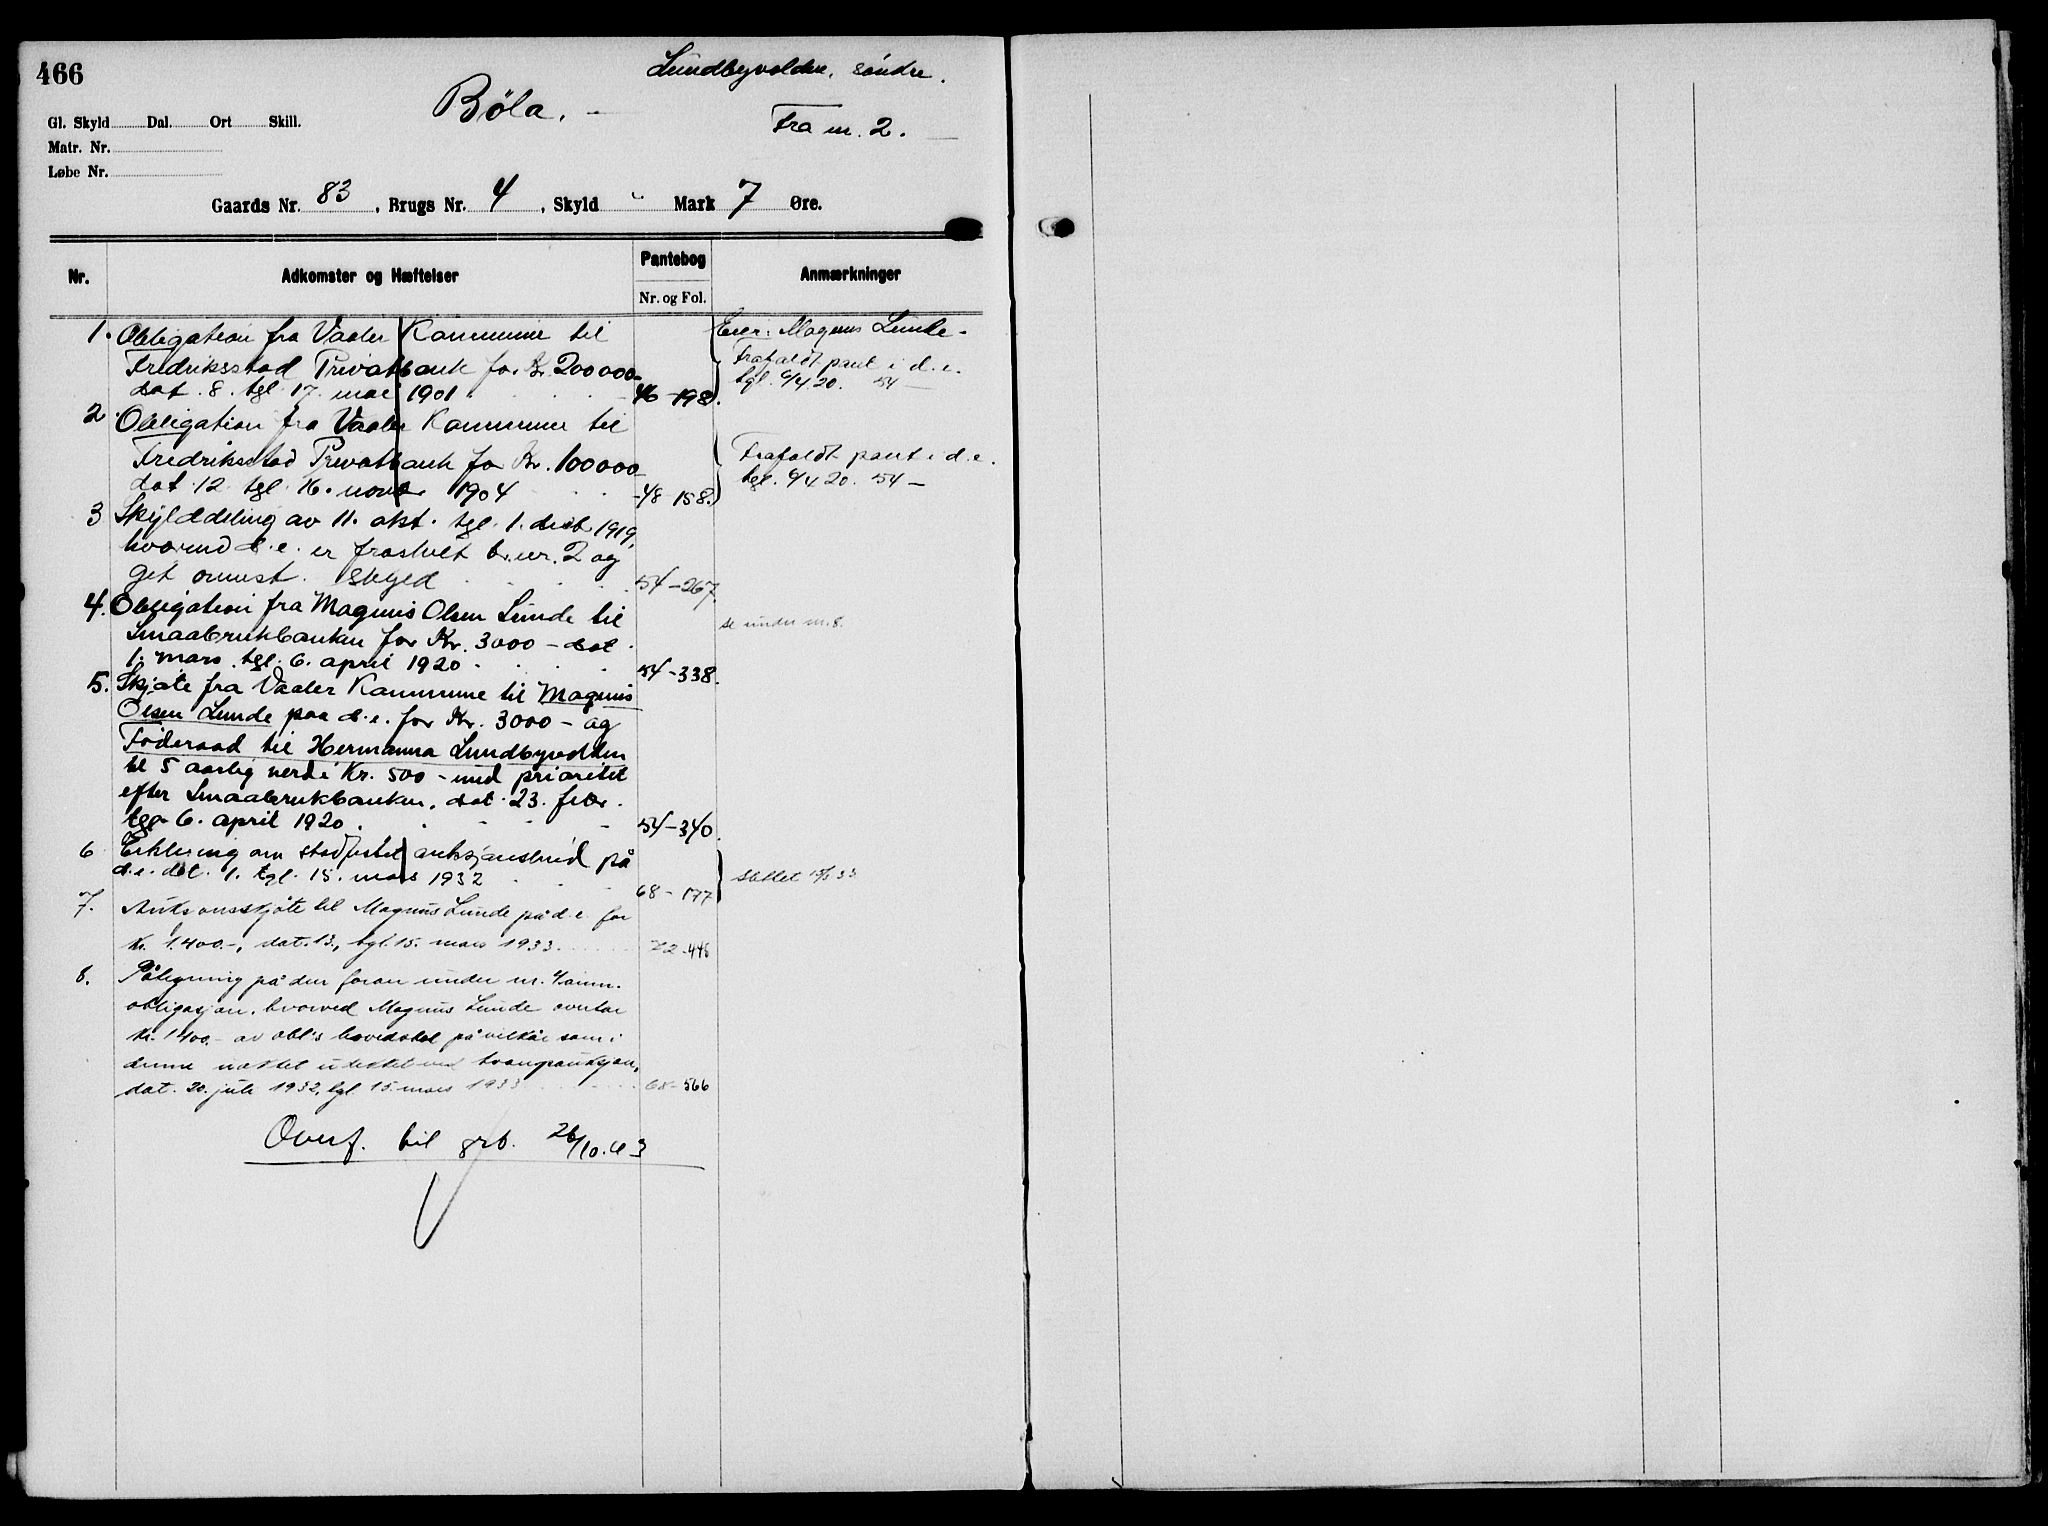 466
Lundbyvolden, söndre.
Böla.
Fra nr. 2.
Gl. Skyld Dal. Ort Skill.
Matr. Nr.
Løbe Nr.
Gaards Nr. 83, Brugs Nr. 4, Skyld " Mark 7 Øre.
Nr. Adkomster og Hæftelser Pantebog Anmærkninger
Nr. og Fol.
1. Obligation fra Vaaler Kommune til Eier: Magnus Lunde.
Fredriksstad Privatbank for Kr. 200000- Frafaldt pant i d.e.
dat. 8. tgl. 17. mai 1901 46-198. tgl. 6/4 20. 54 -
2. Obligation fra Vaaler Kommune til
Fredriksstad Privatbank for Kr. 100000- Frafaldt pant i d.e.
dat. 12. tgl. 16. novbr 1904 48-158. tgl. 6/4 20. 54 -
3 Skylddeling av 11. okt. tgl. 1. desbr 1919,
hvorved d.e. er fraskilt br.nr. 2 og
git ommst. skyld 54-267.
4. Obligation fra Magnus Olsen Lunde til
Smaabrukbanken for Kr. 3000 - dat. se under nr. 8.
1. mars tgl. 6. april 1920 54-338.
5. Skjöte fra Vaaler Kommune til Magnus
Olsen Lunde paa d.e. for Kr. 3000 - og
Föderaad til Hermanna Lundbyvolden
til 5 aarlig verdi Kr. 500 - med prioritet
efter Smaabrukbanken, dat. 23. febr.
tgl. 6. april 1920. 54-340.
6 Erklering om stadfestet auksjonsbud på
d.e. dat. 1. tgl. 15. mars 1932 68-177 slettet 15/3 33
7. Auksjonsskjöte til Magnus Lunde på d.e. for
kr. 1.400.-, dat. 13., tgl. 15. mars 1933. 72-446
8. Påtegning på den foran under nr. 4 anm.
obligasjon, hvorved Magnus Lunde overtar
kr. 1400.- av obl's hovedstol på vilkår som i
denne nevnt utestet ved tvangsauksjon,
dat. 20. juli 1932, tgl. 15. mars 1933 68-566
Overf. til grb. 26/10.43